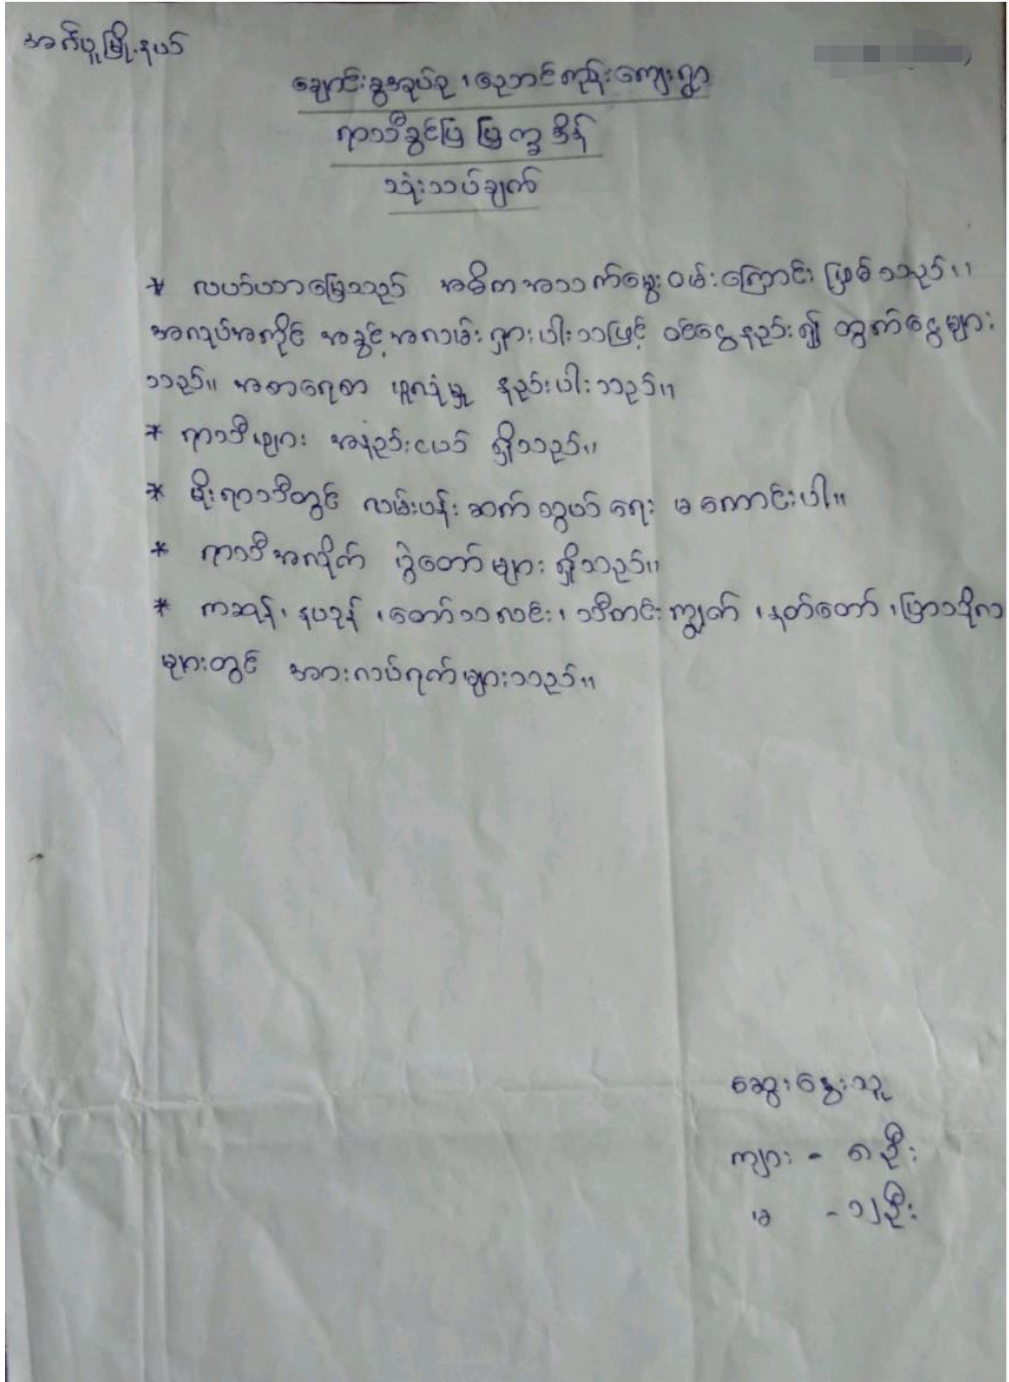 အင်္ဂပူမြို့နယ်
ချောင်းခွအုပ်စု ၊ ညောင်ကုန်းကျေးရွာ
ရာသီခွင်ပြ မြပြက္ခဒိန်
သုံးသပ်ချက်
* လယ်ယာမြေသည် အဓိကအသက်မွေးဝမ်းကြောင်း ဖြစ်သည်။
အလုပ်အကိုင် အခွင့်အလမ်း ရှားပါးသဖြင့် ဝင်ငွေနည်း၍ ထွက်ငွေများ
သည်။ အစားရေစာ ဖူလုံမှု နည်းပါးသည်။
* ရာသီများ အနည်းငယ် ရှိသည်။
* မိုးရာသီတွင် လမ်းပန်း ဆက်သွယ်ရေး မကောင်းပါ။
* ရာသီအလိုက် ပွဲတော်များ ရှိသည်။
* ကဆုန်၊ နယုန် ၊ တော်သလင်း ၊ သီတင်းကျွတ် ၊ နတ်တော် ၊ ပြာသိုလ
များတွင် အားလပ်ရက်များသည်။
ဆွေးနွေးသူ
ကျား - ၈ဦး
မ - ၁၂ဦး